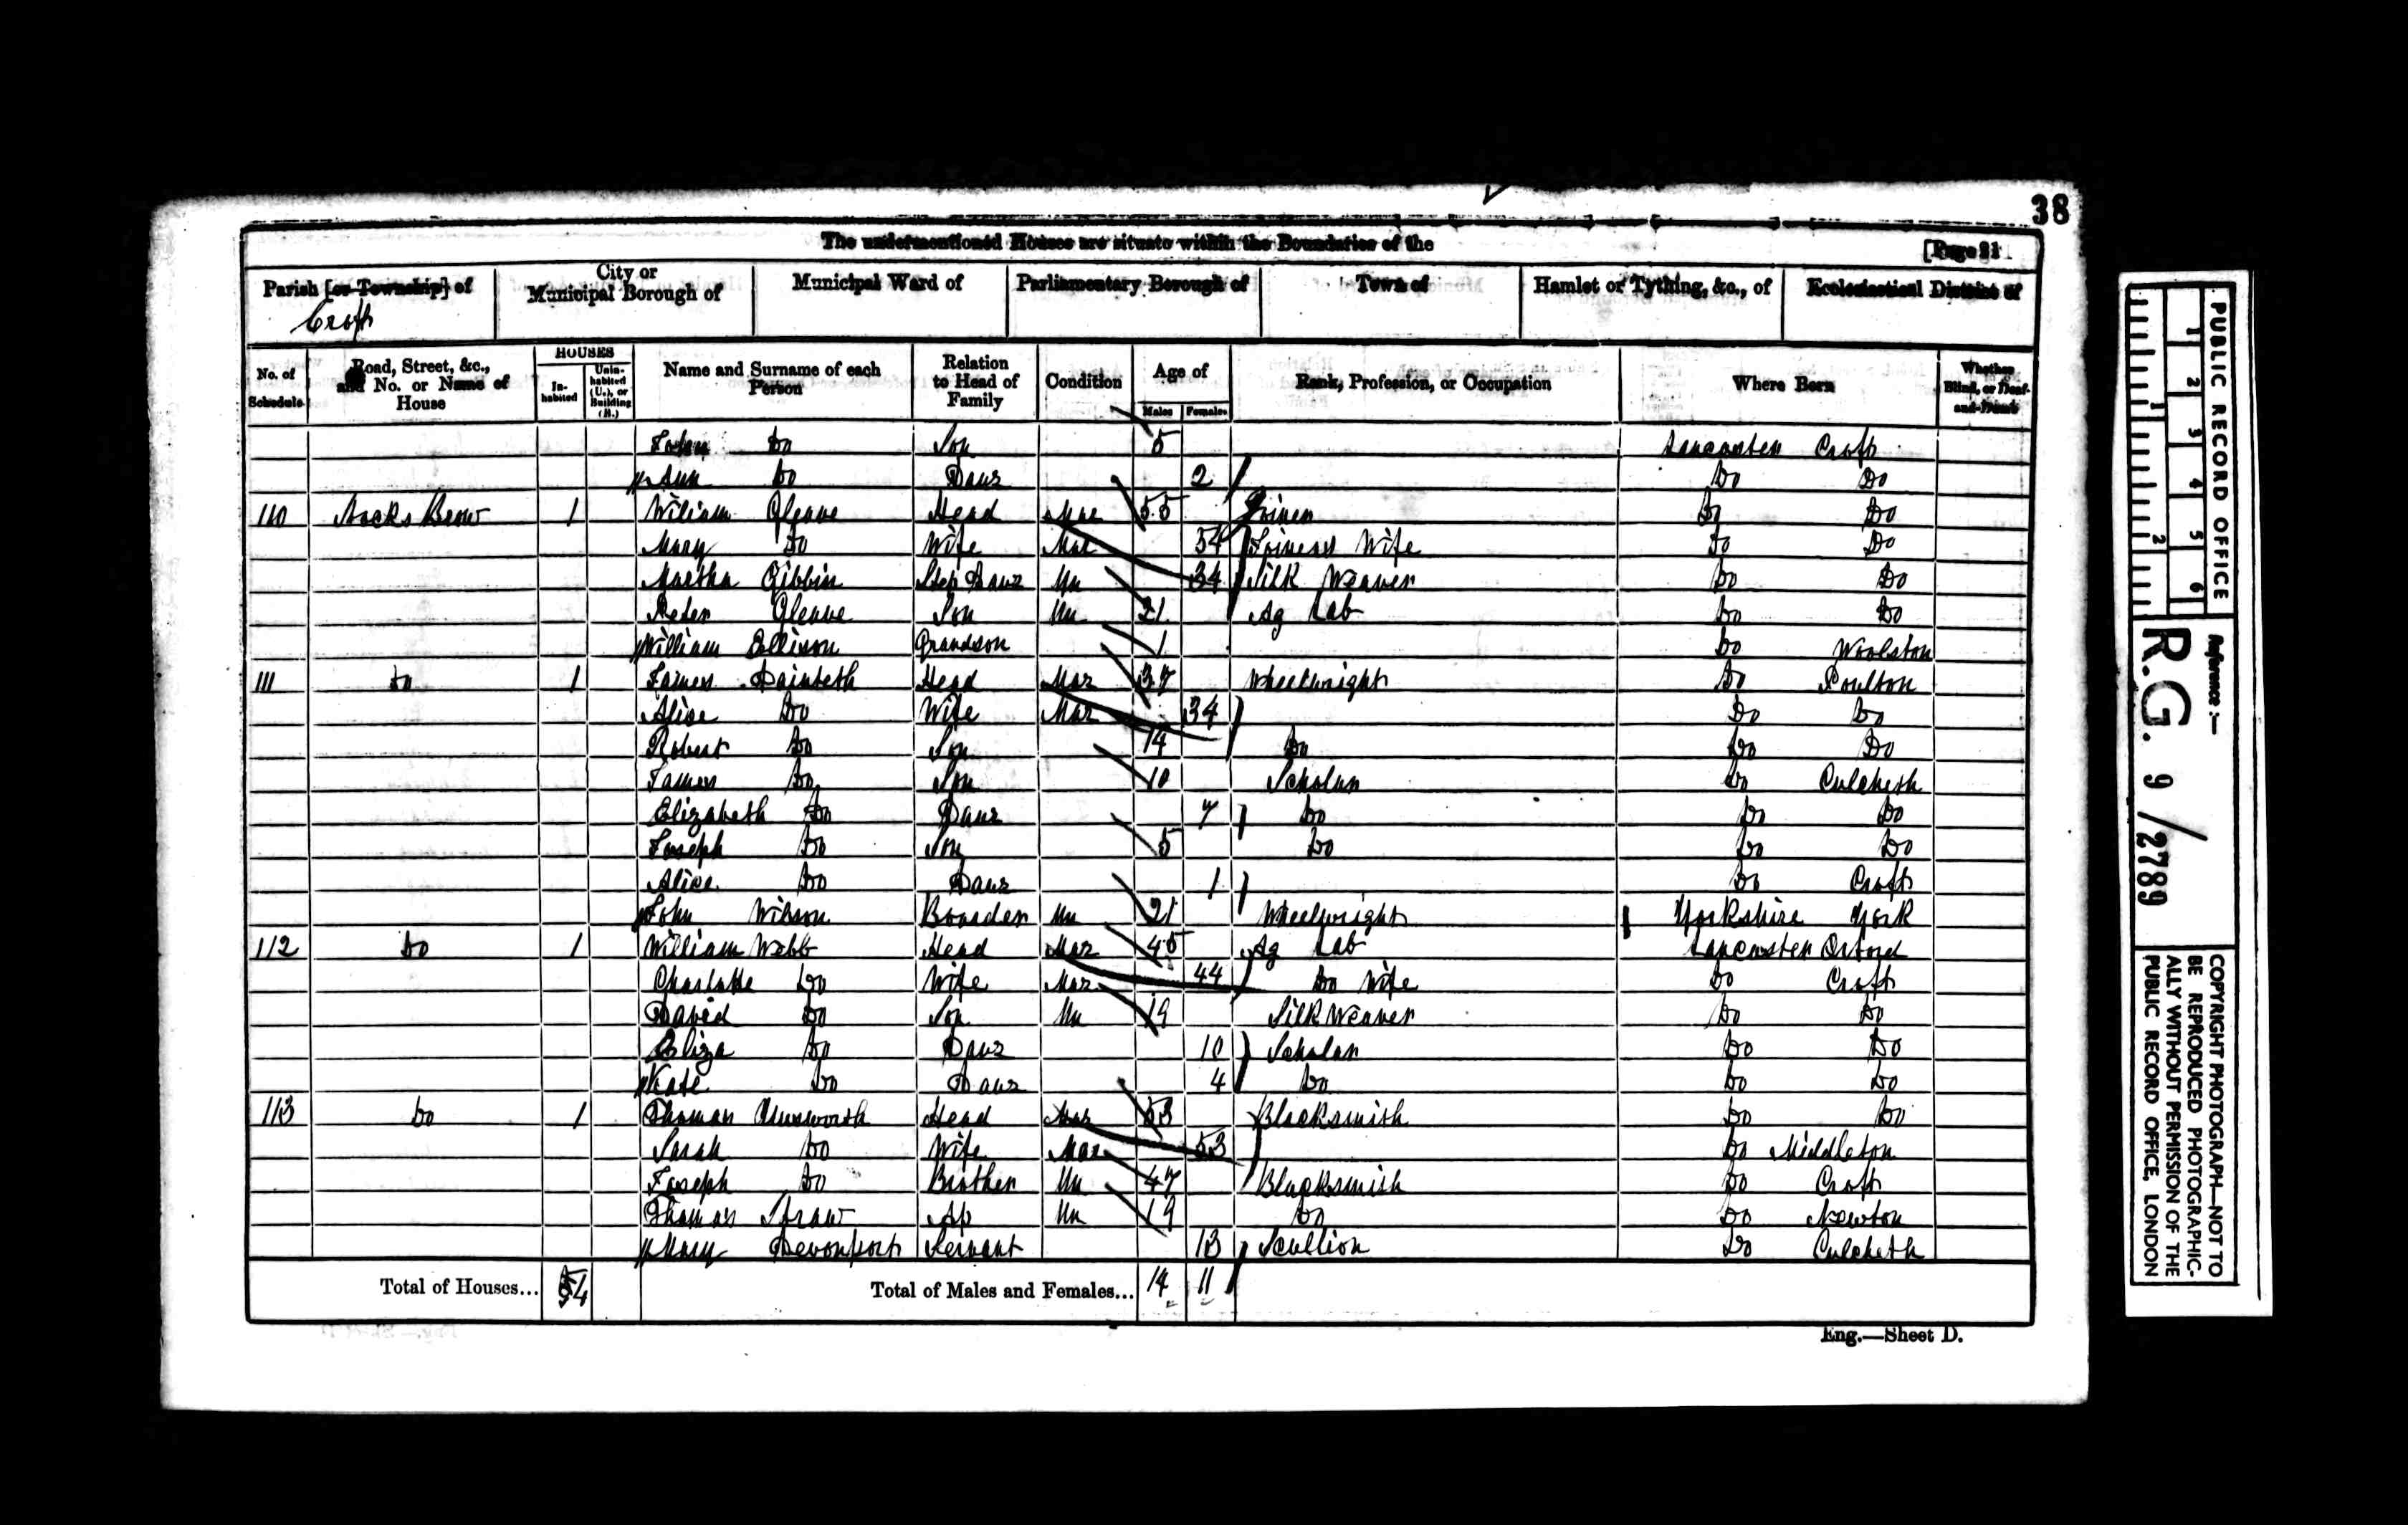 38
The undermentioned Houses are situate within the Boundaries of the
[Page 21
Parish [or Township] of
City or Municipal Borough of
Municipal Ward of
Parliamentary Borough of
Town of
Hamlet or Tything, &c., of
Ecclesiastical District of
Croft
No. of Schedule
Road, Street, &c., and No. or Name of House
HOUSES
In-habited
Unin-habited (U.), or Building (B.)
Name and Surname of each Person
Relation to Head of Family
Condition
Age of
Males
Females
Rank, Profession, or Occupation
Where Born
Whether Blind, or Deaf-and-Dumb
John Do Son 5 Lancaster Croft
Ann Do Daur 2 Do Do
110 Brow 1 William Gleave Head Mar 55 Joiner Do Do
Mary Do Wife Mar 54 Joiners Wife Do Do
Martha Gibbin Step Daur Un 34 Silk Weaver Do Do
Peter Gleave Son Un 21 Ag Lab Do Do
William Ellison Grandson 1 Do Woolston
111 Do 1 James Dainteth Head Mar 37 Wheelwright Do Poulton
Alice Do Wife Mar 34 Do Do
Robert Do Son 14 Do Do Do
James Do Son 10 Scholar Do Culcheth
Elizabeth Do Daur 7 Do Do Do
Joseph Do Son 5 Do Do Do
Alice Do Daur 1 Do Croft
John Wilson Boarder Un 21 Wheelwright Yorkshire York
112 Do 1 William Webb Head Mar 45 Ag Lab Lancaster Orford
Charlotte Do Wife Mar 44 Do Wife Do Croft
David Do Son Un 19 Silk Weaver Do Do
Eliza Do Daur 10 Scholar Do Do
Kate Do Daur 4 Do Do Do
113 Do 1 Thomas Unsworth Head Mar 53 Blacksmith Do Do
Sarah Do Wife Mar 53 Do Middleton
Joseph Do Brother Un 47 Blacksmith Do Croft
Thomas Straw Ap Un 19 Do Do Newton
Mary Devonport Servant 13 Scullion Do Culcheth
Total of Houses... 4 Total of Males and Females... 14 11
Eng.—Sheet D.
PUBLIC RECORD OFFICE
1 2 3 4 5 6
1 2
Reference:—
R.G. 9/2789
COPYRIGHT PHOTOGRAPH—NOT TO
BE REPRODUCED PHOTOGRAPHIC-
ALLY WITHOUT PERMISSION OF THE
PUBLIC RECORD OFFICE, LONDON